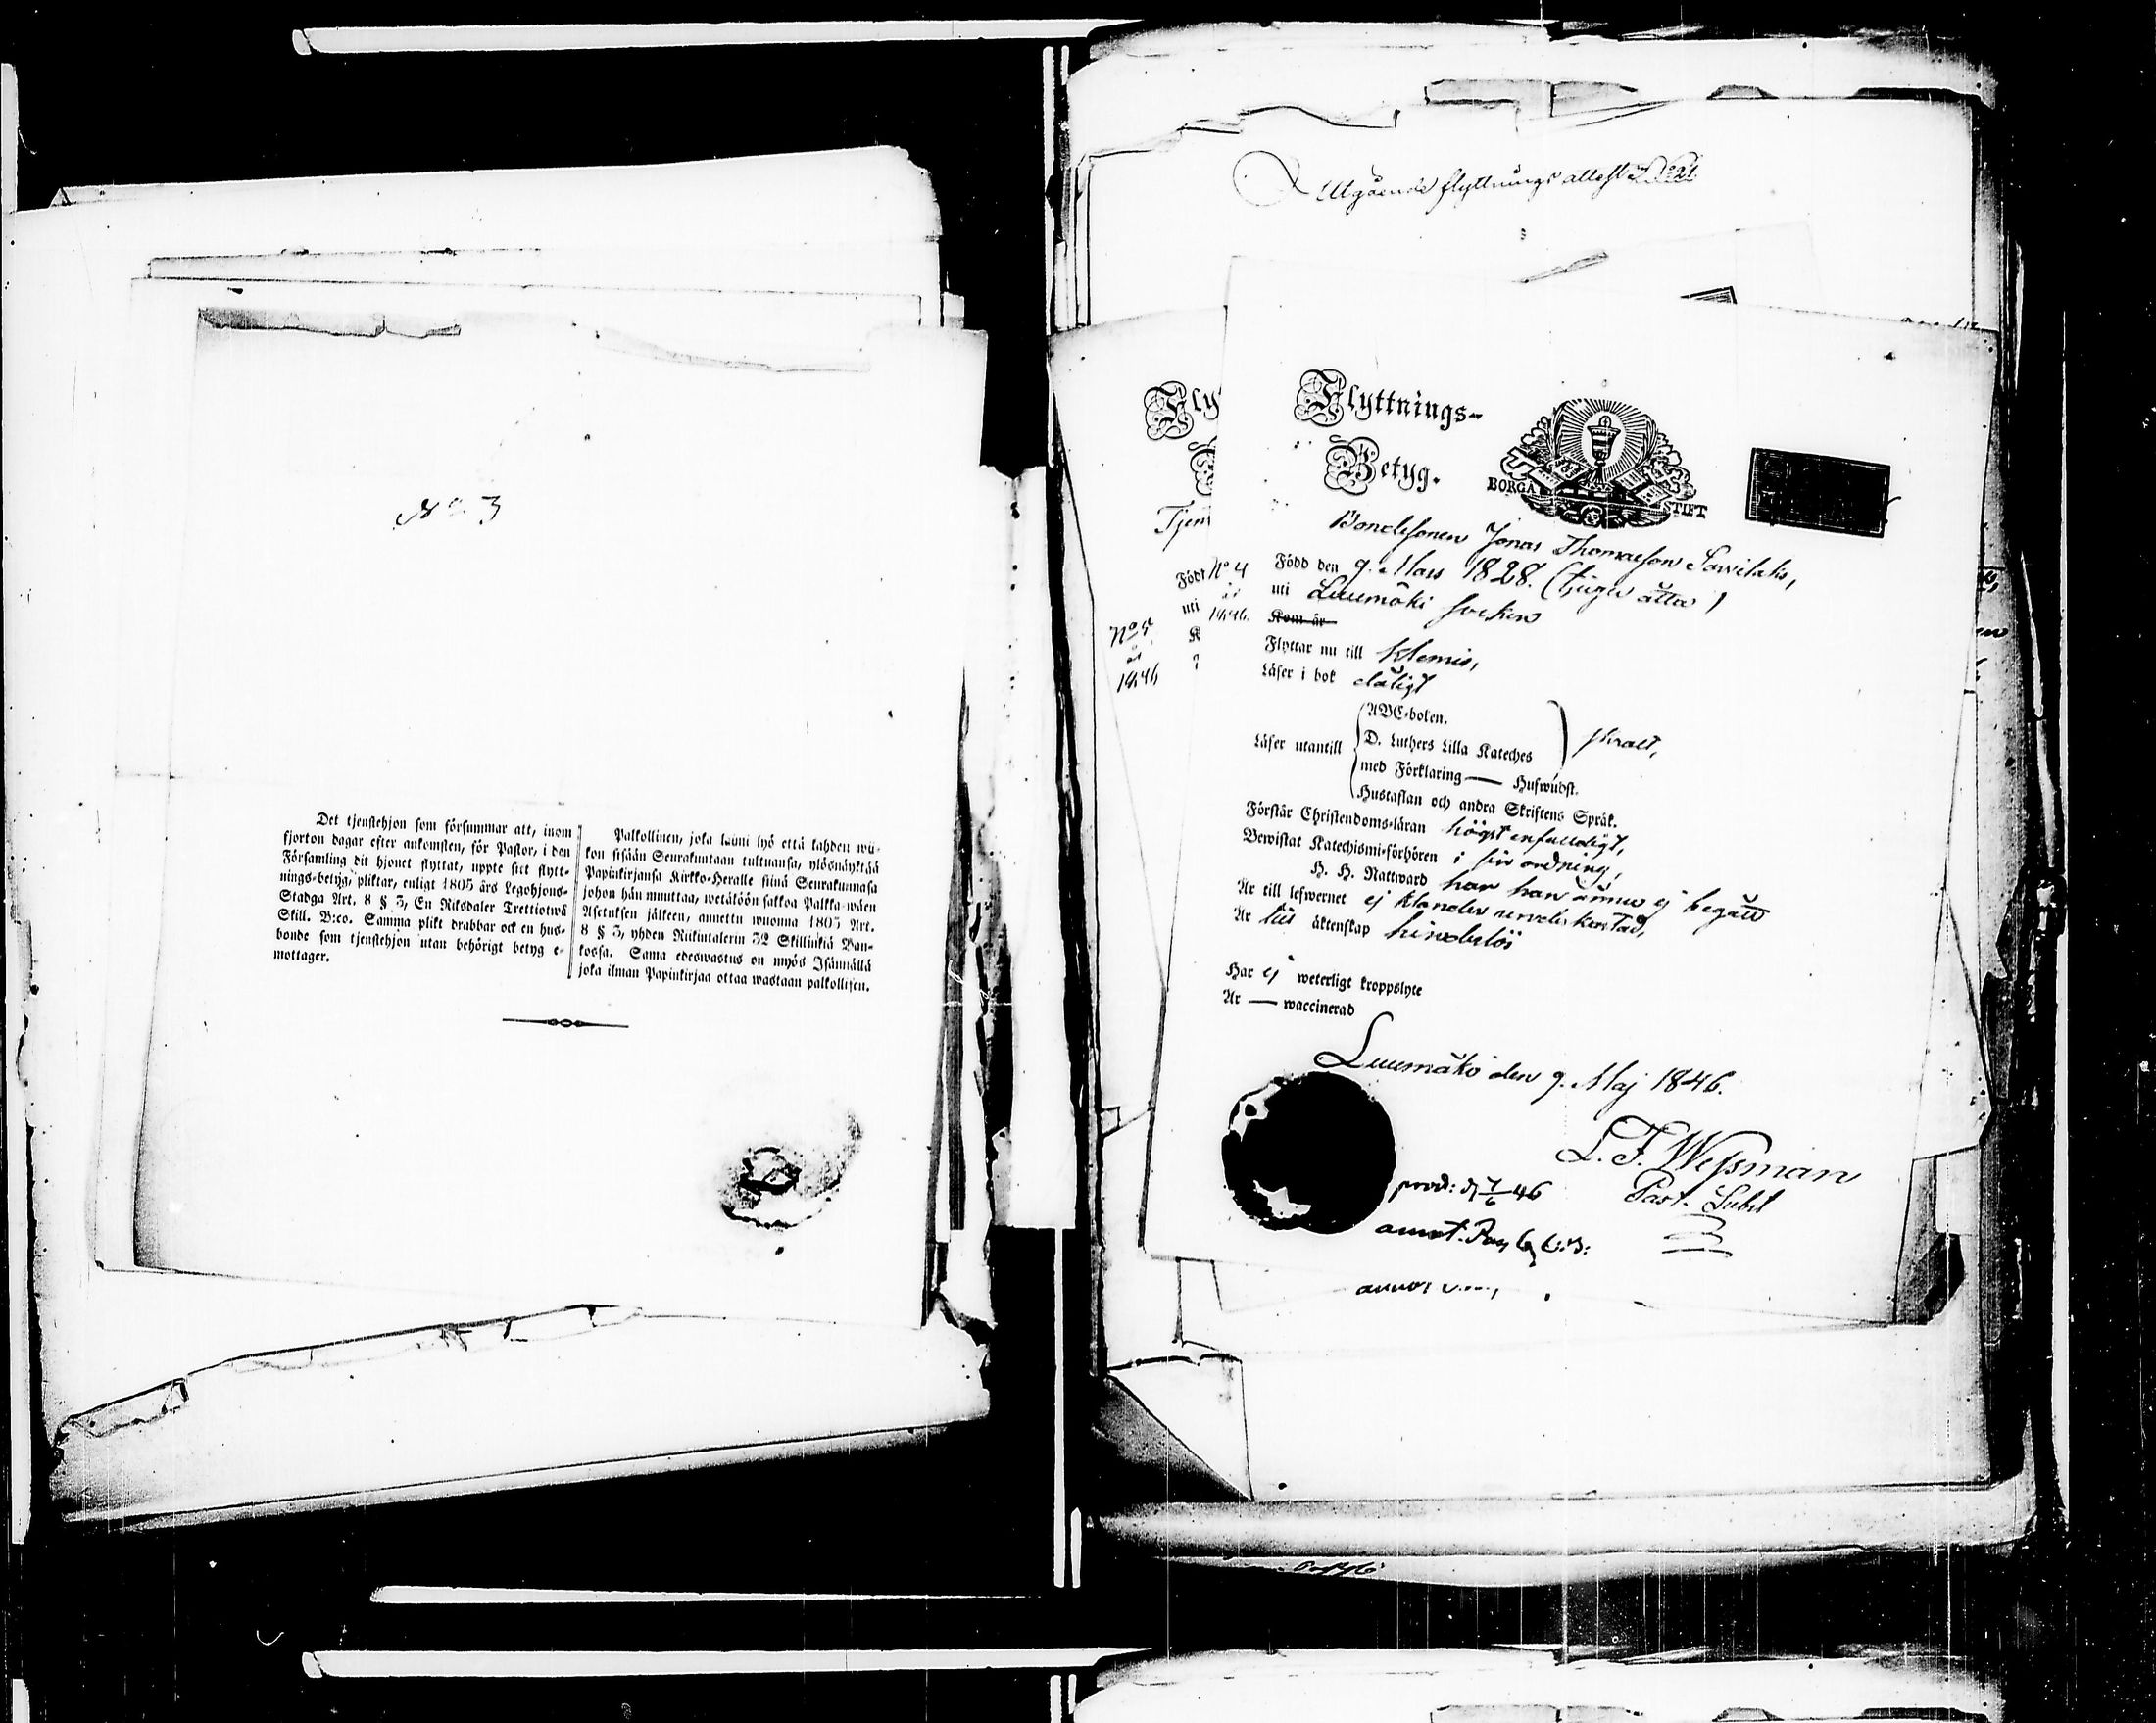 No 3
Det tjenstehjon som försummar att, inom
fjorton dagar efter ankomsten, för Pastor, i den
Församling dit hjonet flyttat, uppte sitt flytt-
nings-betyg, pliktar, enligt 1805 års Legohjons-
Stadga Art. 8 § 3, En Riksdaler Trettiotwå
Skill. B:co. Samma plikt drabbar ock en hus-
bonde som tjenstehjon utan behörigt betyg e-
mottager.
Palkollinen, joka laimi lyö että kahden wii-
kon sisään Seurakuntaan tultuansa, ylösnäyttää
Papinkirjansa Kirkko-Heralle siinä Seurakunnasa
johon hän muuttaa, wetäköön sakkoa Palkka-wäen
Asetuksen jälkeen, annettu wuonna 1805 Art.
8 § 3, yhden Riikintalerin 32 Skillinkiä Ban-
kossa. Sama edeswastus on myös Isännällä
joka ilman Papinkirjaa ottaa wastaan palkollisen.
Utgående flyttnings attest
Fly
Tjen
Född
uti
No 4
år
1846.
No 5
år
1846
Flyttnings-
Betyg.
BORGÅ STIFT
Bondesonen Jonas Thomasson
Född den 9. Mars 1828. (tjugu åtta)
uti Luumäki socken
Kom år
Flyttar nu till Klemis,
Läser i bok dåligt
Läser utantill
ABC-boken.
D. Luthers Lilla Kateches
med Förklaring — Huswudst.
Hustaflan och andra Skriftens Språk.
svalt,
Förstår Christendoms-läran högst enfaldigt,
Bewistat Katechismi-förhören i sin ordning,
H. H. Nattward har han ännu ej begått
Är till lefwernet ej klander underkastad,
Är till äktenskap hinderlös
Har ej weterligt kroppslyte
Är — waccinerad
Luumäki den 9. Maj 1846.
L. F. Wessman
Past. Subst
prod: d 7/6 46